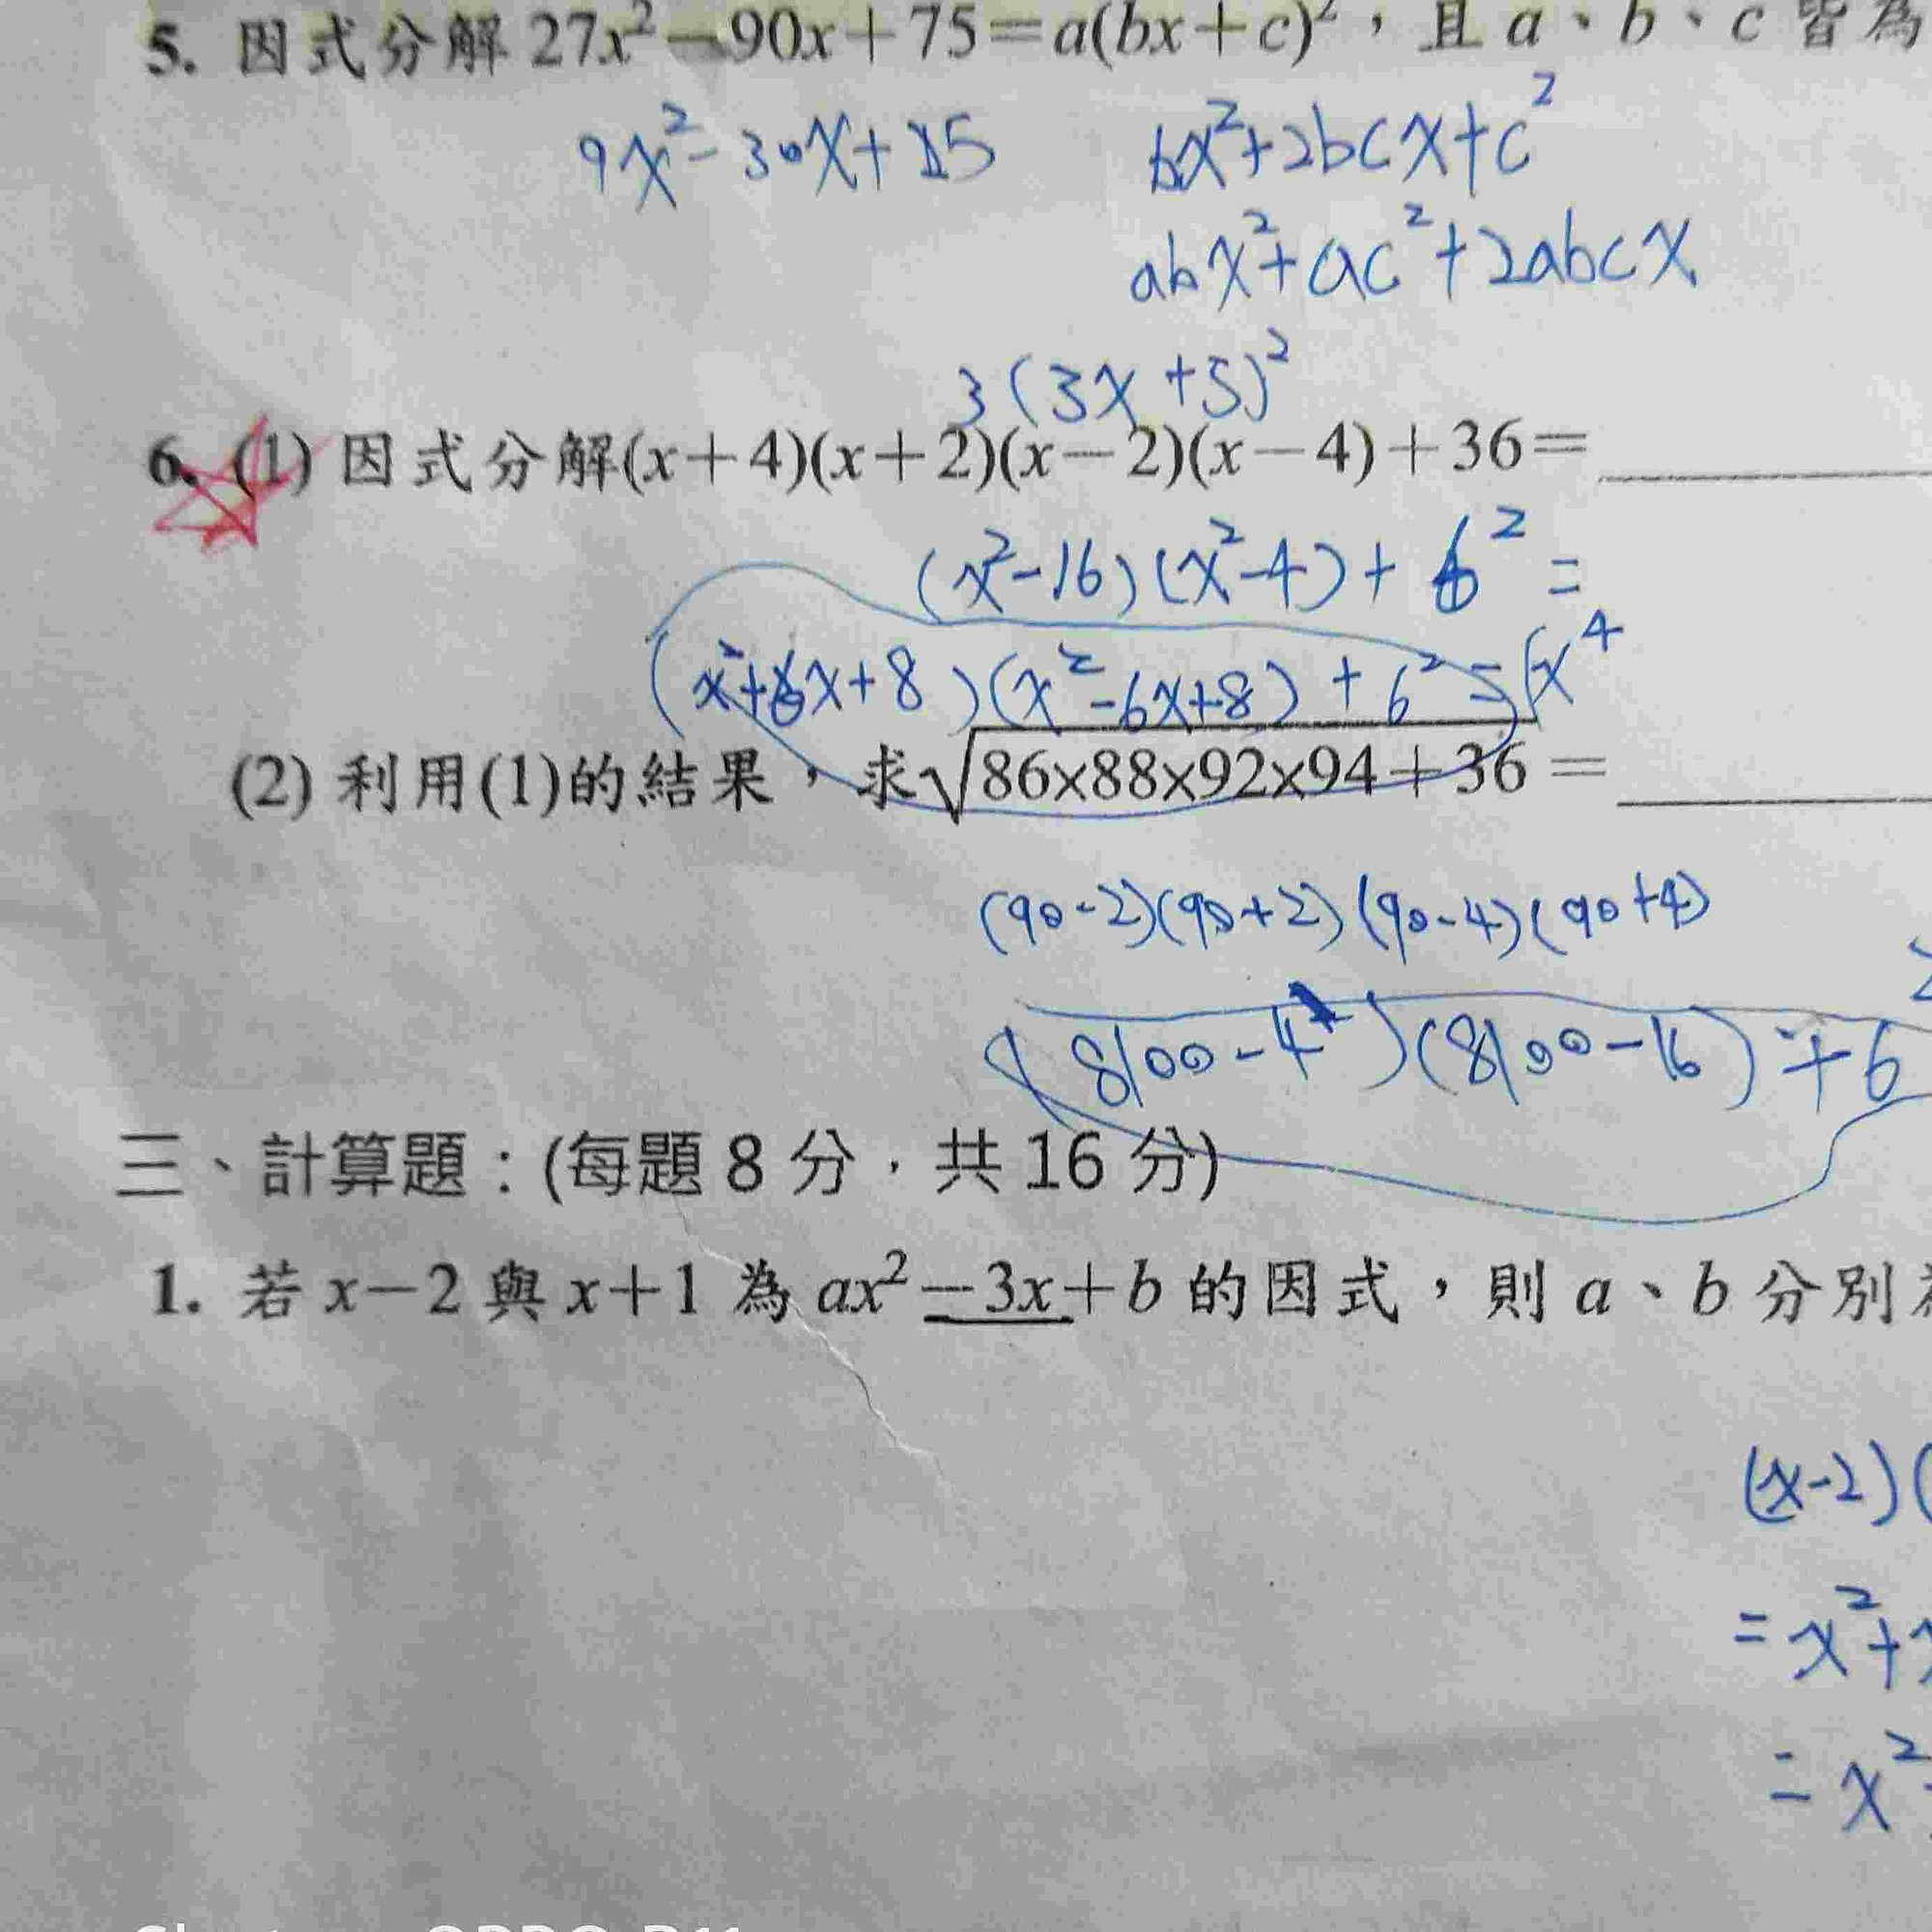 5. 因式分解 27x²－90x＋75＝a(bx＋c)²，且 a、b、c 皆為
9x²-30x+25 bx²+2bcx+c²
abx²+ac²+2abcx
3(3x+5)²
6. (1) 因式分解(x＋4)(x＋2)(x－2)(x－4)＋36＝
(x²-16)(x²-4)+6²=
(x²+6x+8)(x²-6x+8)+6²=(x⁴
(2) 利用(1)的結果，求√86×88×92×94＋36＝
(90-2)(90+2)(90-4)(90+4)
(8100-4)(8100-16)+6
三、計算題：(每題 8 分，共 16 分)
1. 若 x－2 與 x＋1 為 ax²－3x＋b 的因式，則 a、b 分別
(x-2)(
=x²+
=x²